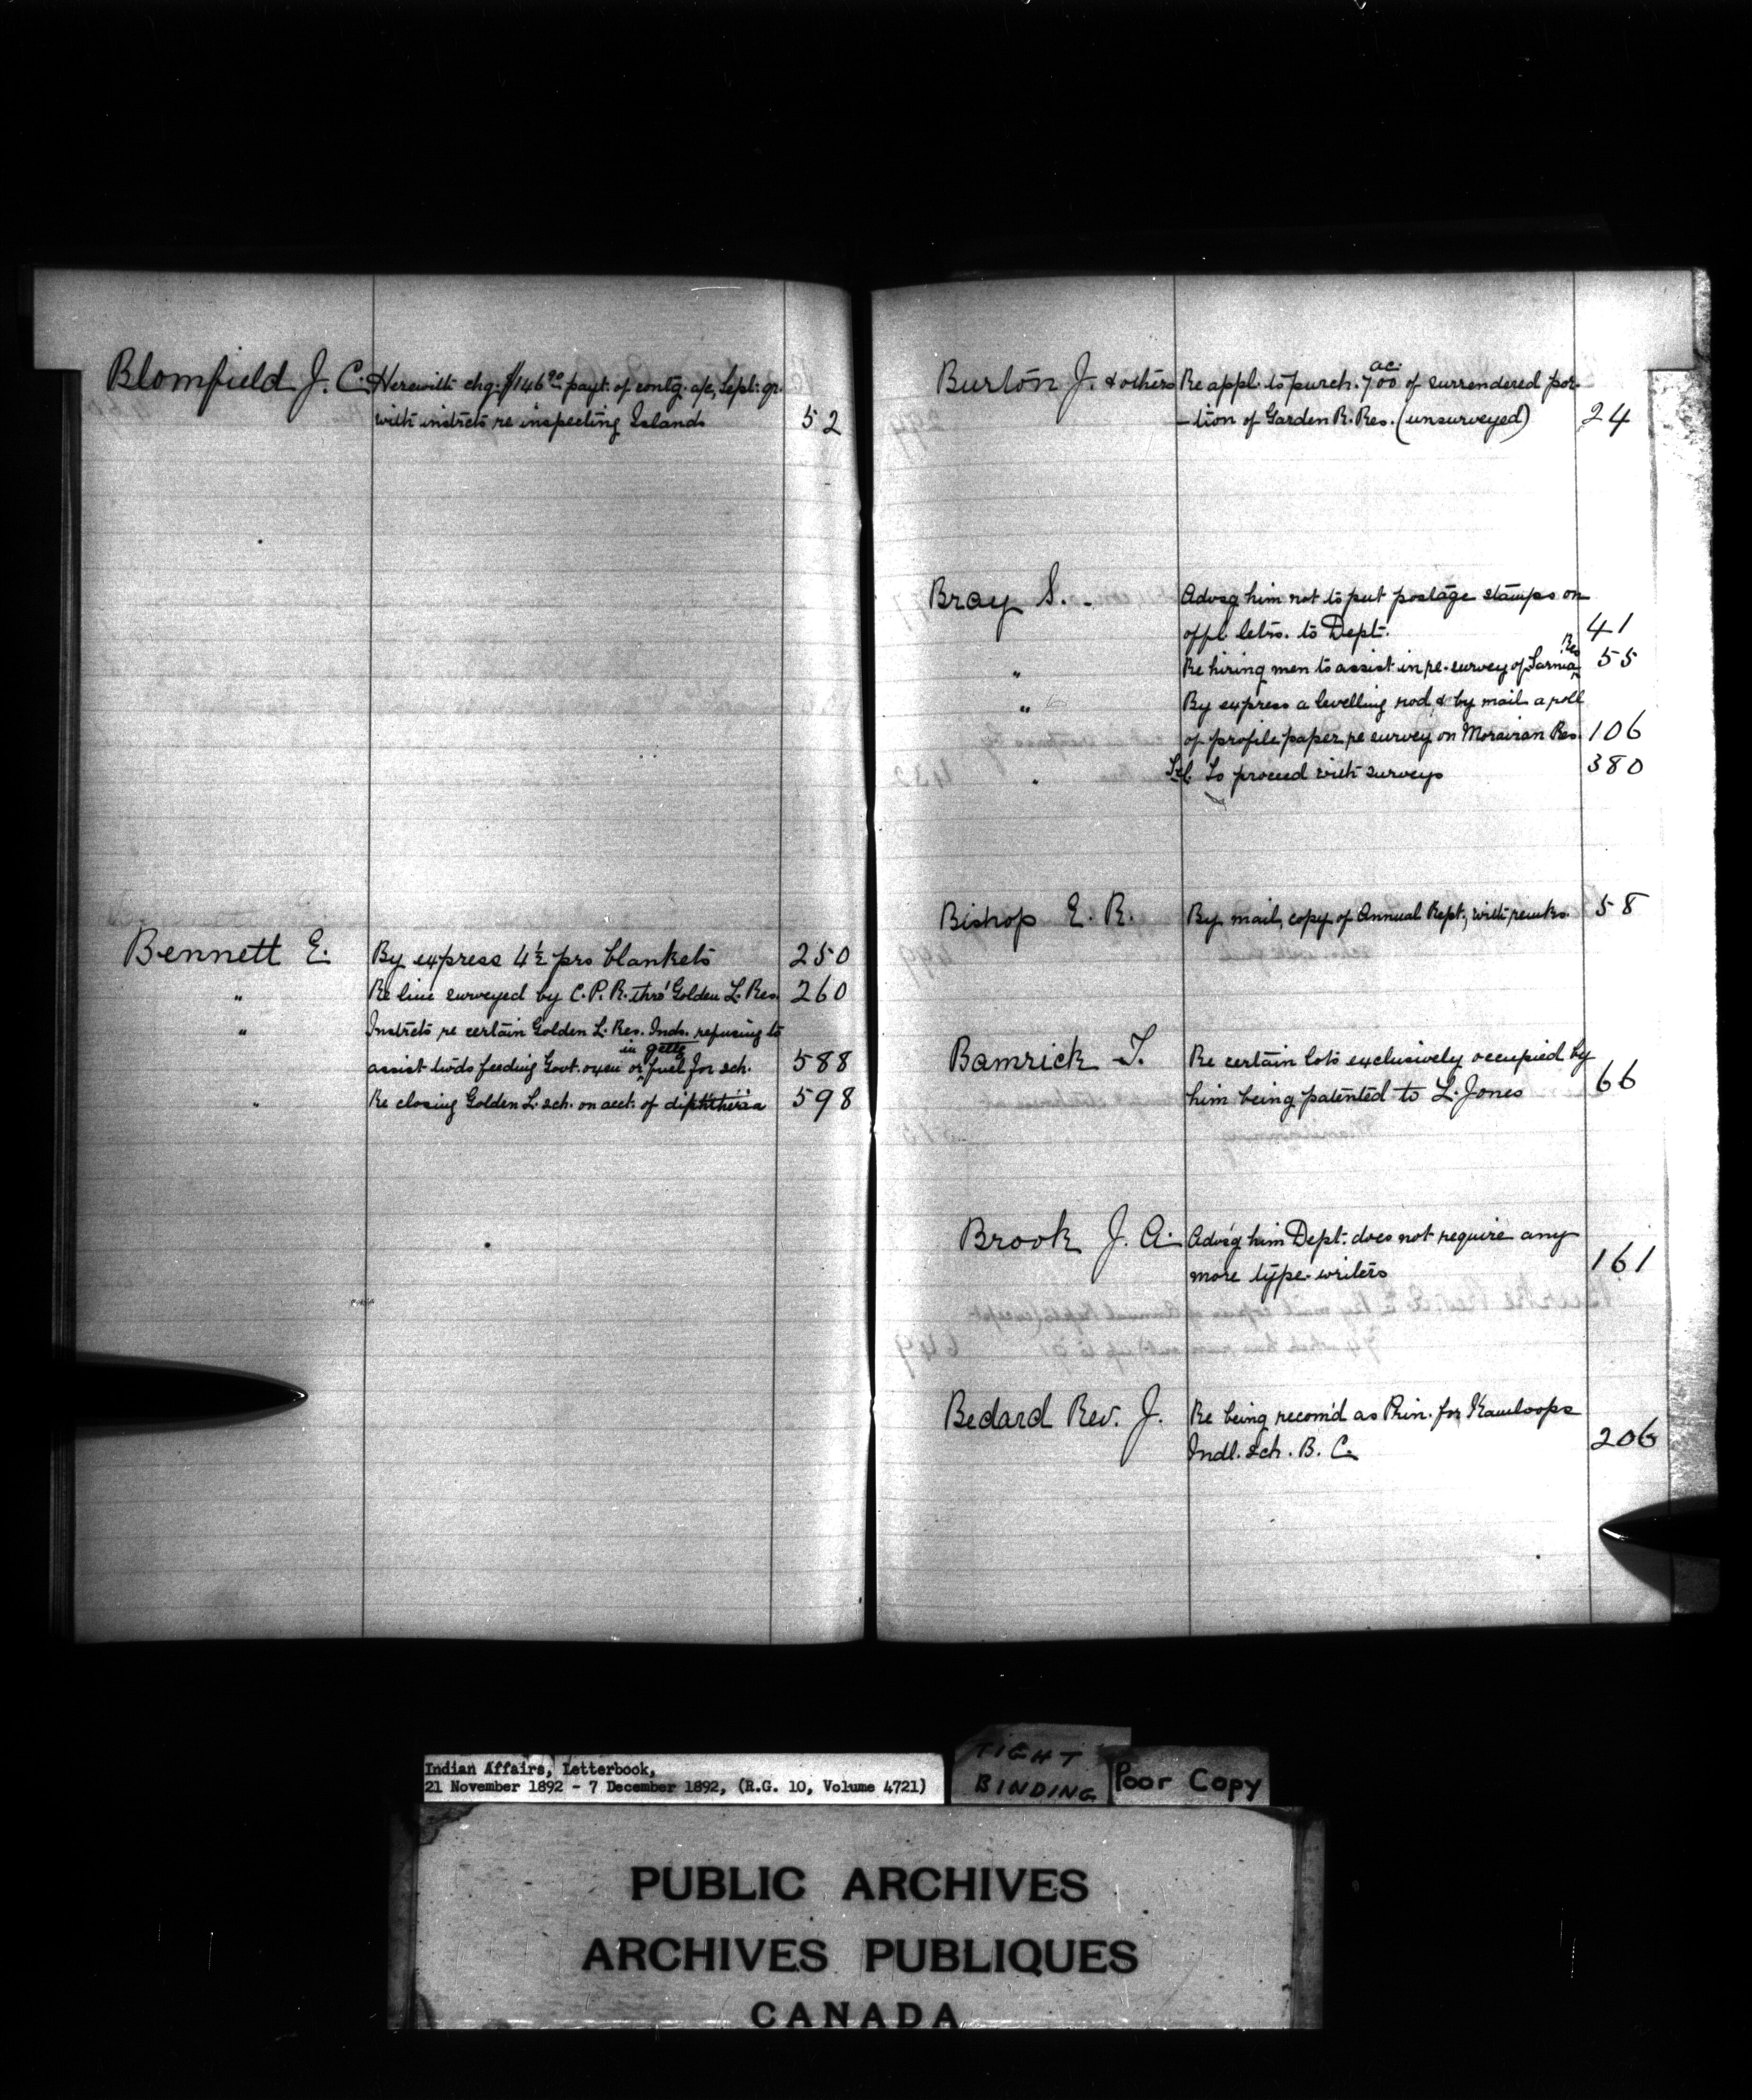 Blomfield J. C. Herewith chq. $146 90 payt. of contg. a/c, Sept. qr.
with instrcts re inspecting Islands 52
Bennett E. By express 4½ prs blankets 250
" Re line surveyed by C.P.R. thro' Golden L. Res. 260
" Instrcts re certain Golden L. Res. Inds. refusing to
in gettg
assist twds feeding Govt. oxen or fuel for sch. 588
" Re closing Golden L. sch. on acct. of diphtheria 598
ac.
Burton J. & others Re appl. to purch. 700 of surrendered por-
-tion of Garden R. Res. (unsurveyed) 24
Bray S. - Advsg him not to put postage stamps on
offl. letrs. to Dept. 41
Res
" Re hiring men to assist in re-survey of Sarnia 55
" By express a levelling rod, & by mail a roll
of profile paper re survey on Moravian Res. 106
" Tel. To proceed with surveys 380
Bishop E. R. By mail, copy of Annual Rept., with remks. 58
Bamrick T. Re certain lots exclusively occupied by
him being patented to L. Jones 66
Brook J. A. Advsg him Dept. does not require any
more type-writers 161
Bedard Rev. J. Re being recom'd as Prin. for Kamloops
Indl. sch. B. C. 206
Indian Affairs, Letterbook,
21 November 1892 - 7 December 1892, (R.G. 10, Volume 4721)
TIGHT
BINDING
Poor Copy
PUBLIC ARCHIVES
ARCHIVES PUBLIQUES
CANADA